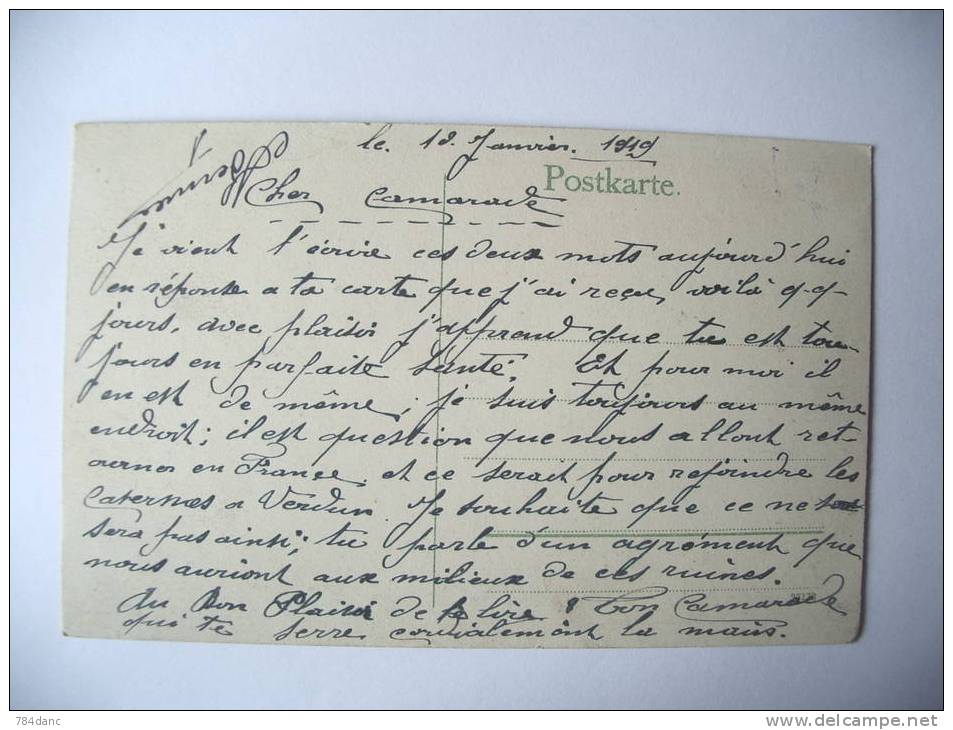 le. 18. Janvier. 1919
Postkarte.
Cher Camarade
Je vient t'écrire ces deux mots aujourd'hui
en réponse a ta carte que j'ai reçu, voilà q-q-
jours, avec plaisir j'apprend que tu est tou-
jours en parfaite santé. Et pour moi il
en est de même; je suis toujours au même
endroit; il est question que nous allont ret-
ourner en France, et ce serait pour rejoindre les
Casernes a Verdun. Je souhaite que ce ne
sera pas ainsi; tu parle d'un agrément que
nous auriont aux milieux de ces ruines.
Au Bon Plaisir de te lire! Ton Camarade
qui te serre cordialement la main.
784danc
www.delcampe.net